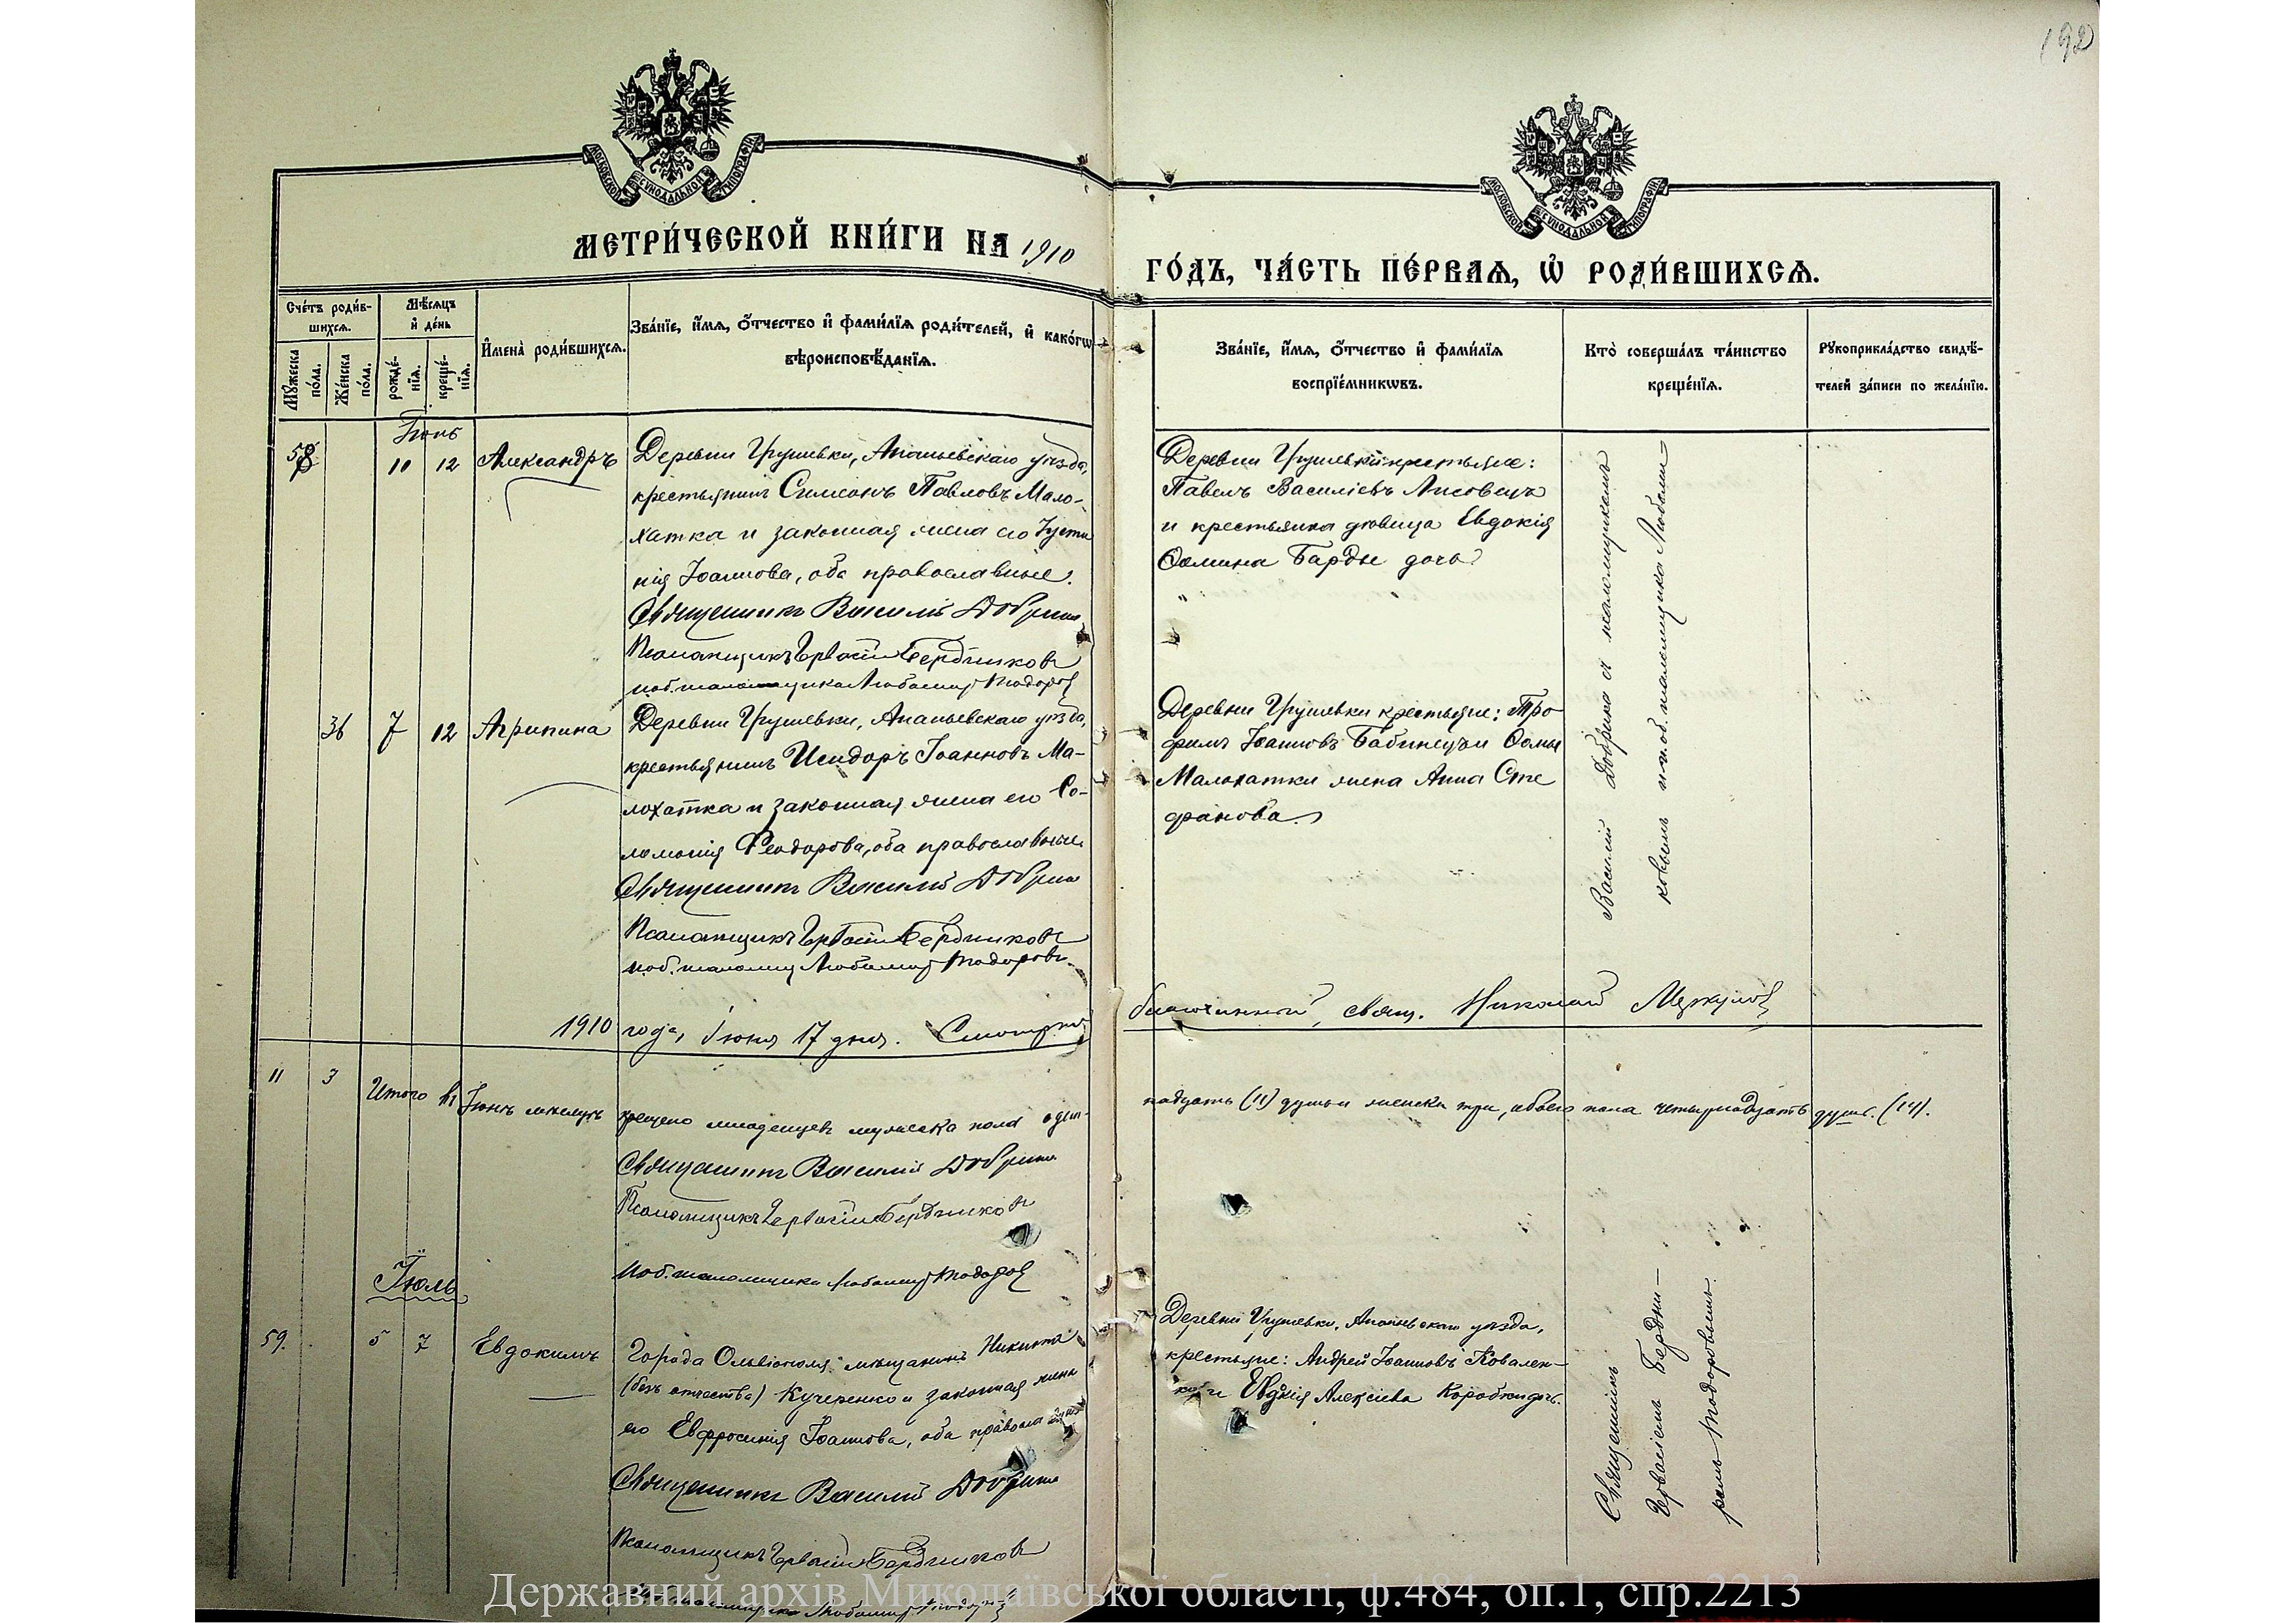 192
МОСКОВСКОЙ СУНОДАЛЬНОЙ ТИПОГРАФІИ
МОСКОВСКОЙ СУНОДАЛЬНОЙ ТИПОГРАФІИ
МЕТРИ́ЧЕСКОЙ КНИ́ГИ НА 1910
ГО́ДЪ, ЧА́СТЬ ПЕ́РВАѦ, Ѡ҆ РОДИ́ВШИХСѦ.
Сче́тъ роди́в-
шихсѧ.
Мꙋ́жеска по́ла.
Же́нска по́ла.
Мѣ́сѧцъ
и҆ де́нь
рожде́-
нїѧ.
креще́-
нїѧ.
И҆мена̀ роди́вшихсѧ.
Зва́нїе, и҆́мѧ, ѻ҆́тчество и҆ фами́лїѧ роди́телей, и҆ како́гѡ
вѣроисповѣ́данїѧ.
Зва́нїе, и҆́мѧ, ѻ҆́тчество и҆ фами́лїѧ
воспрїе́мникѡвъ.
Кто̀ соверша́лъ та́инство
креще́нїѧ.
Рꙋкоприкла́дство свидѣ́-
телей за́писи по жела́нїю.
Іюнь
58 10 12 Александръ
Деревни Грушевки, Ананьевскаго уѣзда,
крестьянинъ Симеонъ Павловъ Мало-
хатка и законная жена его Іусти
нія Іоаннова, оба православные.
Священникъ Василій Добрина
Псаломщикъ Гервасій Бердниковъ
и об. псаломщика Любомиръ Тодоровъ
Деревни Грушевки крестьяне:
Павелъ Василіевъ Лисовецъ
и крестьянка дѣвица Евдокія
Ѳомина Барды дочь
Василій Добрина съ псаломщикомъ
36 7 12 Агрипина
Деревни Грушевки, Ананьевскаго уѣзда,
крестьянинъ Исидоръ Іоанновъ Ма-
лохатка и законная жена его Со-
ломонія Ѳеодорова, оба православные
Священникъ Василій Добрина
Псаломщикъ Гервасій Бердниковъ
и об. псаломщ Любомиръ Тодоровъ.
Деревни Грушевки крестьяне: Тро-
фимъ Іоанновъ Бабинецъ и Ѳомы
Малохатки жена Анна Сте
фанова
1910 года, Іюня 17 дня. Смотрѣлъ
благочинный, свящ. Николай
11 3 Итого въ Іюнѣ мѣсяцѣ крещено младенцевъ мужеска пола один-
надцать (11) душъ и женска три, обоего пола четырнадцать душъ. (14).
Священникъ Василій Добрина
Псаломщикъ Гервасій Бердниковъ
И об. псаломщика Любомиръ Тодоровъ
Іюль
59. 5 7 Евдокимъ
Города Ольвіополя мѣщанинъ Никита
(безъ отчества) Кучеренко и законная жена
его Евфросинія Іоаннова, оба православные
Священникъ Василій Добрина
Псаломщикъ Гервасій Бердниковъ
Деревни Грушевки, Ананьевскаго уѣзда,
крестьяне: Андрей Іоанновъ Ковален-
ко и Евдокія Алексіева Коробки дочь.
Священникъ
Гервасіемъ Бердни-
Тодоровымъ.
Державний архів Миколаївської області, ф.484, оп.1, спр.2213